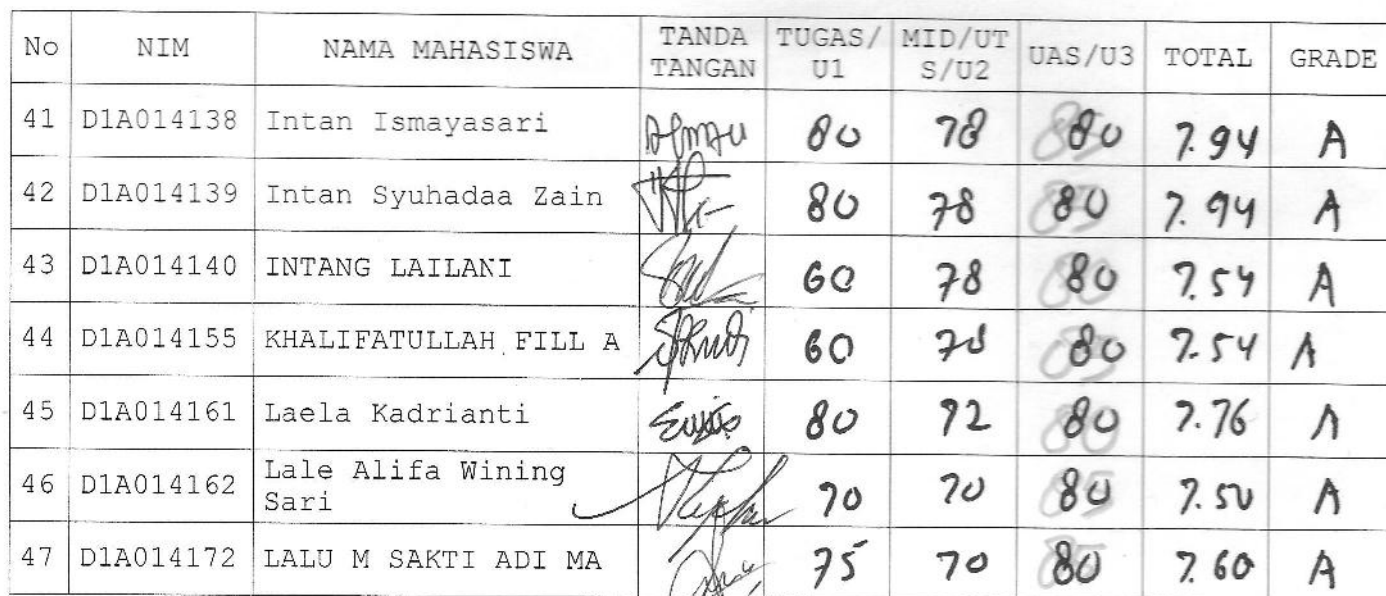 No NIM NAMA MAHASISWA TANDA TANGAN TUGAS/ U1 MID/UT S/U2 UAS/U3 TOTAL GRADE
41 D1A014138 Intan Ismayasari 80 78 80 7.94 A
42 D1A014139 Intan Syuhadaa Zain 80 78 80 7.94 A
43 D1A014140 INTANG LAILANI 60 78 80 7.54 A
44 D1A014155 KHALIFATULLAH FILL A 60 78 80 7.54 A
45 D1A014161 Laela Kadrianti 80 72 80 7.76 A
46 D1A014162 Lale Alifa Wining Sari 70 70 80 7.50 A
47 D1A014172 LALU M SAKTI ADI MA 75 70 80 7.60 A